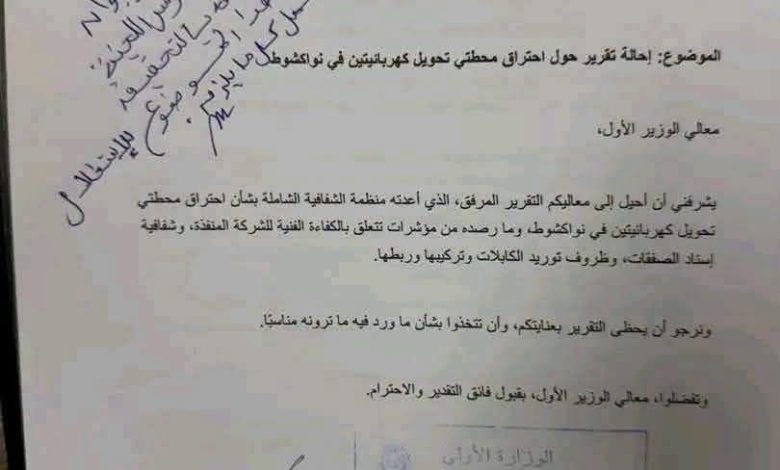 الموضوع: إحالة تقرير حول احتراق محطتي تحويل كهربائيتين في نواكشوط
معالي الوزير الأول،
يشرفني أن أحيل إلى معاليكم التقرير المرفق، الذي أعدته منظمة الشفافية الشاملة بشأن احتراق محطتي
تحويل كهربائيتين في نواكشوط، وما رصده من مؤشرات تتعلق بالكفاءة الفنية للشركة المنفذة، وشفافية
إسناد الصفقات، وظروف توريد الكابلات وتركيبها وربطها.
ونرجو أن يحظى التقرير بعنايتكم، وأن تتخذوا بشأن ما ورد فيه ما ترونه مناسبًا.
وتفضلوا، معالي الوزير الأول، بقبول فائق التقدير والاحترام.
الوزارة الأولى